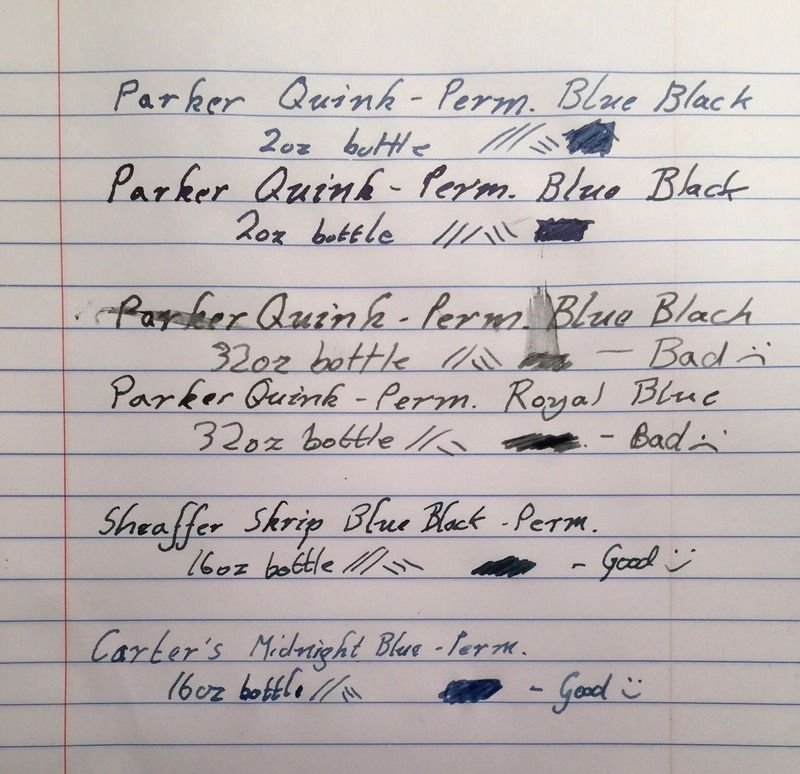 Parker Quink - Perm. Blue Black
2oz bottle
Parker Quink - Perm. Blue Black
2oz bottle
Parker Quink - Perm. Blue Black
32oz bottle - Bad :(
Parker Quink - Perm. Royal Blue
32oz bottle - Bad :(
Sheaffer Skrip Blue Black - Perm.
16oz bottle - Good :)
Carter's Midnight Blue - Perm.
16oz bottle - Good :)